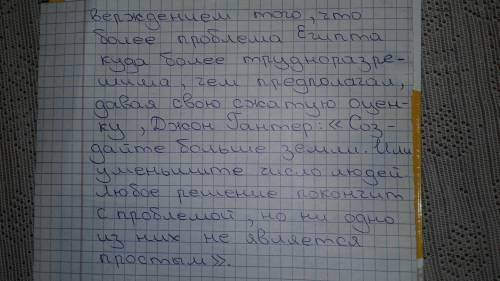 верждением того, что
более проблема Египта
куда более трудноразре-
шима, чем предполагал,
давая свою сжатую оцен-
ку, Джон Гантер: «Соз-
дайте больше земли. Или
уменьшите число людей
Любое решение покончит
с проблемой, но ни одно
из них не является
простым».